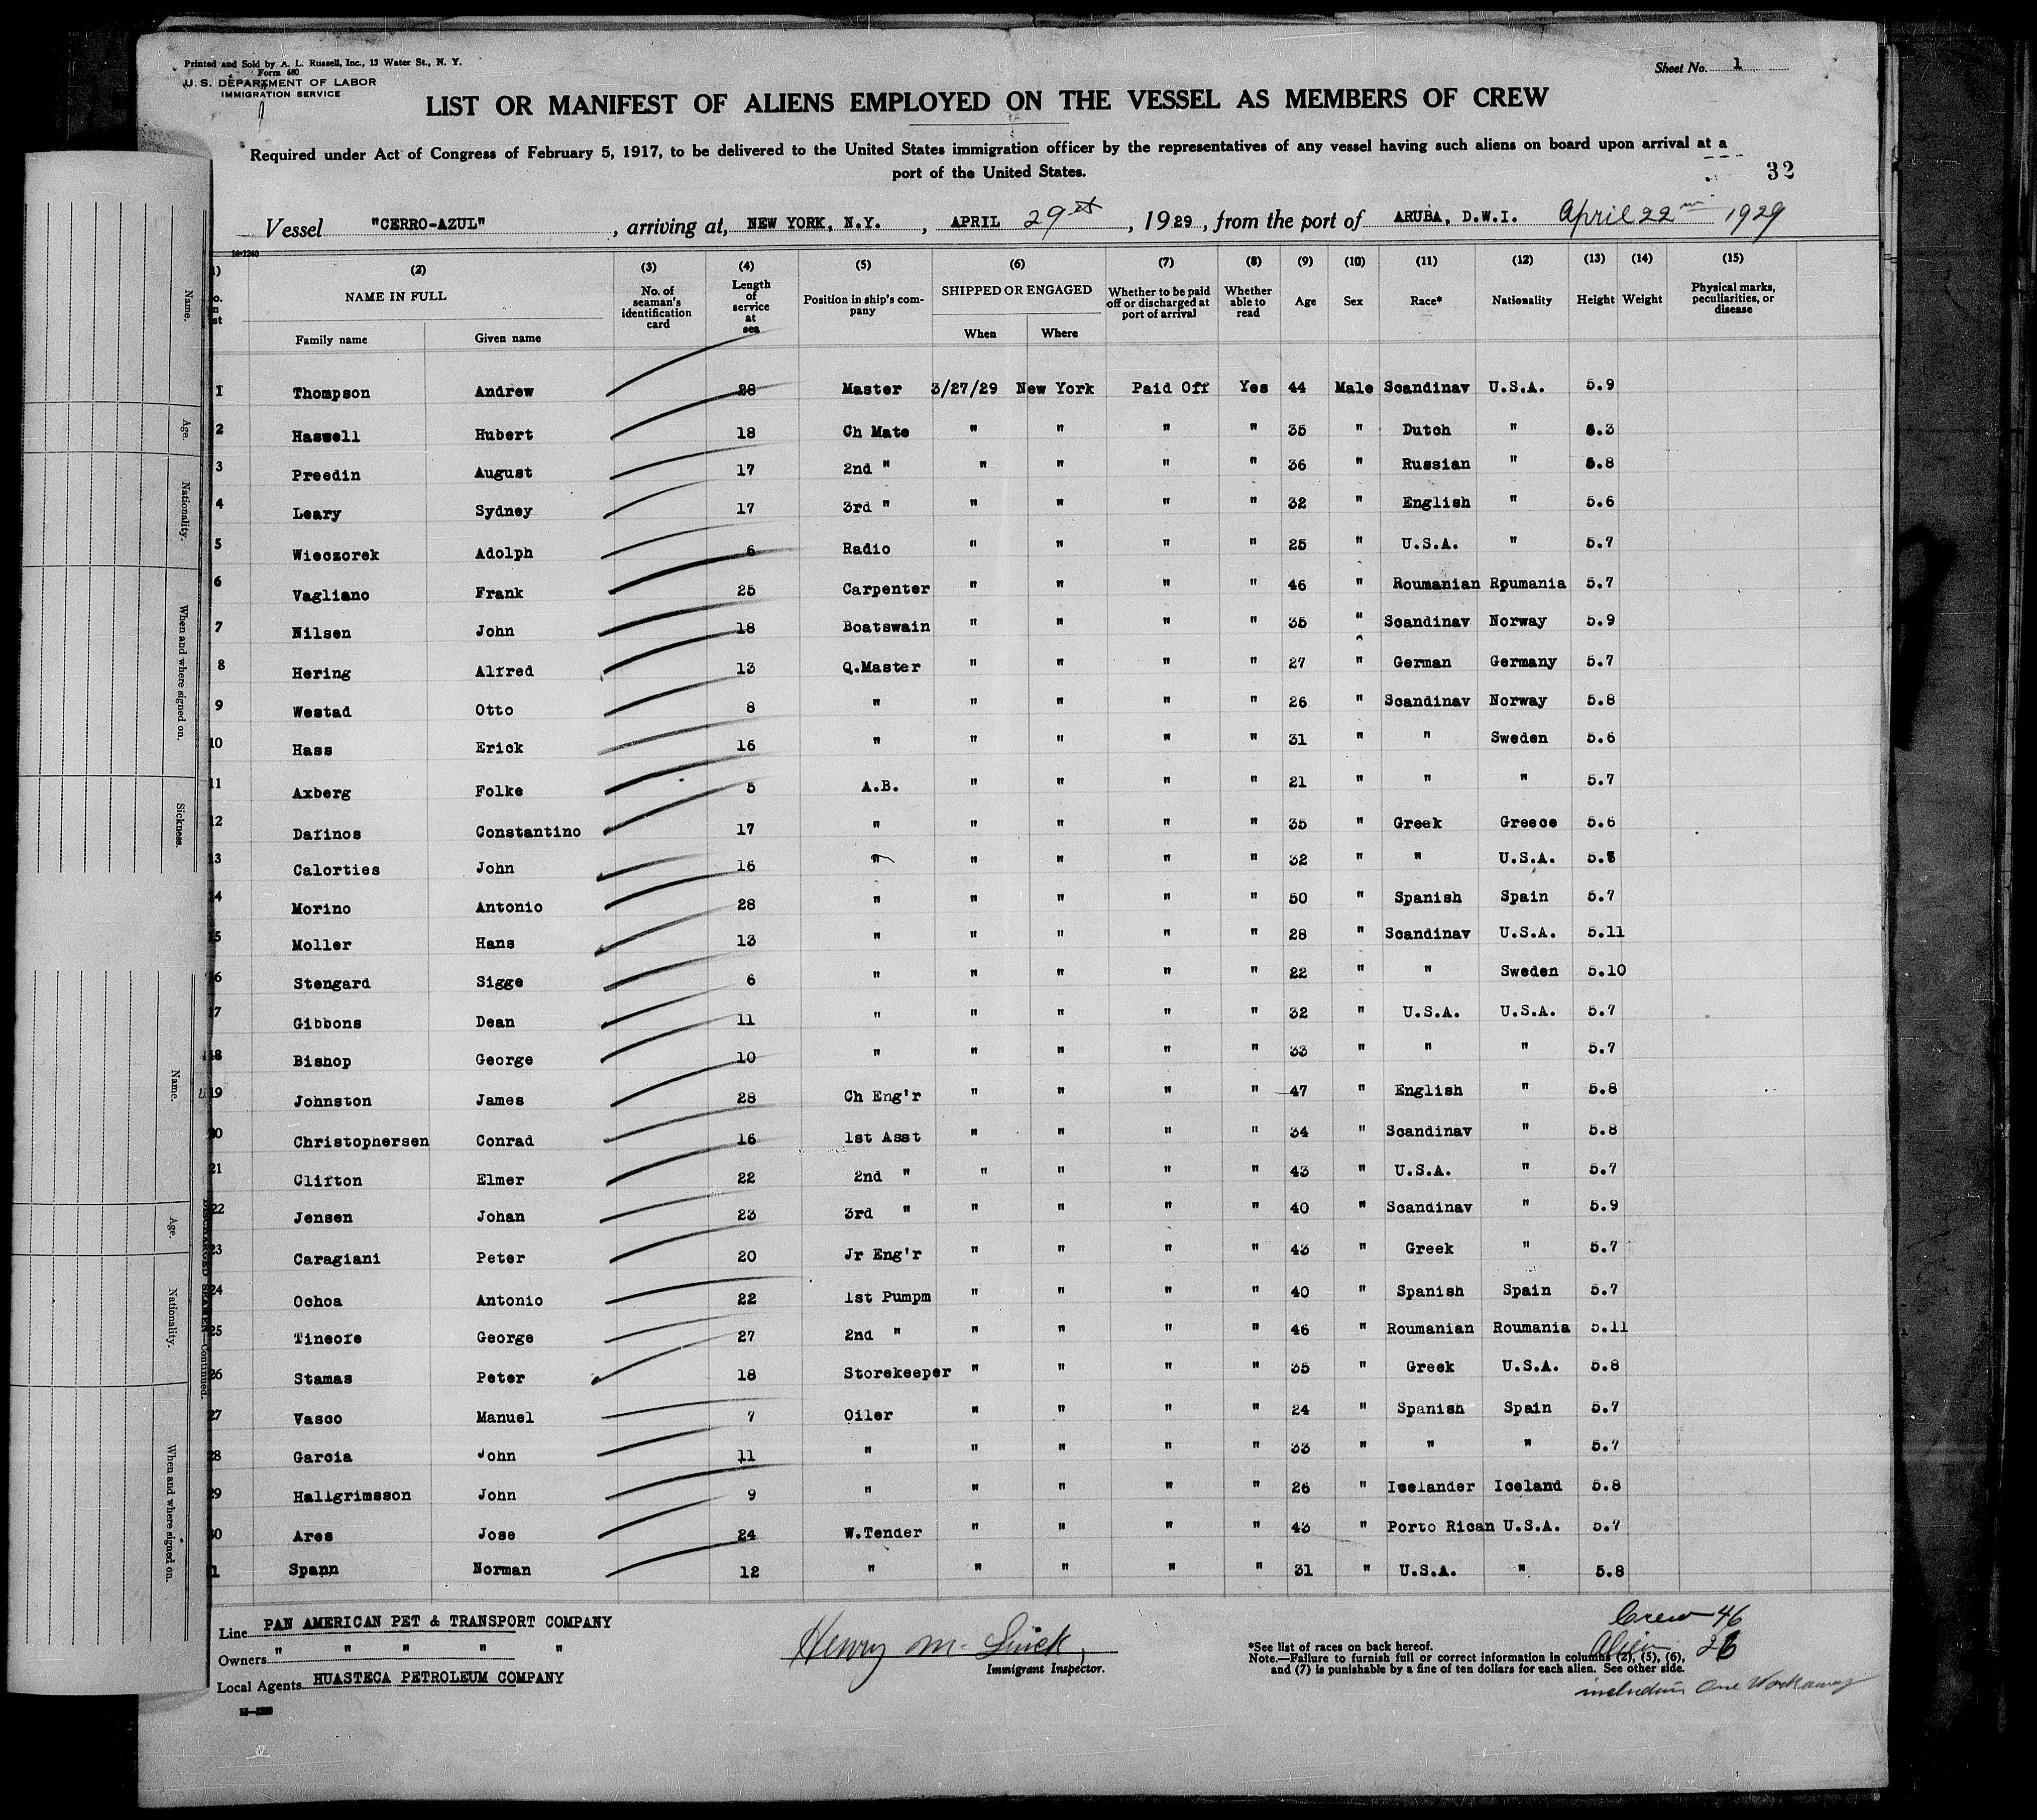 Printed and Sold by A. L. Russell, Inc., 13 Water St., N. Y.
Form 680
U. S. DEPARTMENT OF LABOR
IMMIGRATION SERVICE
Sheet No. 1
LIST OR MANIFEST OF ALIENS EMPLOYED ON THE VESSEL AS MEMBERS OF CREW
Required under Act of Congress of February 5, 1917, to be delivered to the United States immigration officer by the representatives of any vessel having such aliens on board upon arrival at a
port of the United States.
32
Vessel "CERRO-AZUL", arriving at, NEW YORK, N.Y., APRIL 29st, 1929, from the port of ARUBA, D.W.I. April 22nd 1929
14-1240
(2) (3) (4) (5) (6) (7) (8) (9) (10) (11) (12) (13) (14) (15)
NAME IN FULL
Family name
Given name
No. of seaman's identification card
Length of service at sea
Position in ship's company
SHIPPED OR ENGAGED
When
Where
Whether to be paid off or discharged at port of arrival
Whether able to read
Age
Sex
Race*
Nationality
Height
Weight
Physical marks, peculiarities, or disease
1 Thompson Andrew 28 Master 3/27/29 New York Paid Off Yes 44 Male Scandinav U.S.A. 5.9
2 Haswell Hubert 18 Ch Mate " " " " 35 " Dutch " 6.3
3 Preedin August 17 2nd " " " " " 36 " Russian " 5.8
4 Leary Sydney 17 3rd " " " " " 32 " English " 5.6
5 Wieczorek Adolph 6 Radio " " " " 25 " U.S.A. " 5.7
6 Vagliano Frank 25 Carpenter " " " " 46 " Roumanian Roumania 5.7
7 Nilsen John 18 Boatswain " " " " 35 " Scandinav Norway 5.9
8 Hering Alfred 13 Q.Master " " " " 27 " German Germany 5.7
9 Westad Otto 8 " " " " " 26 " Scandinav Norway 5.8
10 Hass Erick 16 " " " " " 31 " " Sweden 5.6
11 Axberg Folke 5 A.B. " " " " 21 " " " 5.7
12 Darinos Constantino 17 " " " " " 35 " Greek Greece 5.6
13 Calorties John 16 " " " " " 32 " " U.S.A. 5.8
14 Morino Antonio 28 " " " " " 50 " Spanish Spain 5.7
15 Moller Hans 13 " " " " " 28 " Scandinav U.S.A. 5.11
16 Stengard Sigge 6 " " " " " 22 " " Sweden 5.10
17 Gibbons Dean 11 " " " " " 32 " U.S.A. U.S.A. 5.7
18 Bishop George 10 " " " " " 33 " " " 5.7
19 Johnston James 28 Ch Eng'r " " " " 47 " English " 5.8
20 Christophersen Conrad 16 1st Asst " " " " 34 " Scandinav " 5.8
21 Clifton Elmer 22 2nd " " " " " 43 " U.S.A. " 5.7
22 Jensen Johan 23 3rd " " " " " 40 " Scandinav " 5.9
23 Caragiani Peter 20 Jr Eng'r " " " " 43 " Greek " 5.7
24 Ochoa Antonio 22 1st Pumpm " " " " 40 " Spanish Spain 5.7
25 Tineofe George 27 2nd " " " " " 46 " Roumanian Roumania 5.11
26 Stamas Peter 18 Storekeeper " " " " 35 " Greek U.S.A. 5.8
27 Vasco Manuel 7 Oiler " " " " 24 " Spanish Spain 5.7
28 Garcia John 11 " " " " " 33 " " " 5.7
29 Hallgrimsson John 9 " " " " " 26 " Icelander Iceland 5.8
30 Ares Jose 24 W.Tender " " " " 43 " Porto Rican U.S.A. 5.7
1 Spann Norman 12 " " " " " 31 " U.S.A. " 5.8
Line PAN AMERICAN PET & TRANSPORT COMPANY
Owners " " " " "
Local Agents HUASTECA PETROLEUM COMPANY
Henry M.
Immigrant Inspector.
*See list of races on back hereof.
Note.—Failure to furnish full or correct information in columns (2), (5), (6),
and (7) is punishable by a fine of ten dollars for each alien. See other side.
Crew 46
Alien 26
including One Workaway
Name.
Age.
Nationality.
When and where signed on.
Sickness.
Name.
Age.
Nationality.
When and where signed on.
DISCHARGED SEAMEN—Continued.